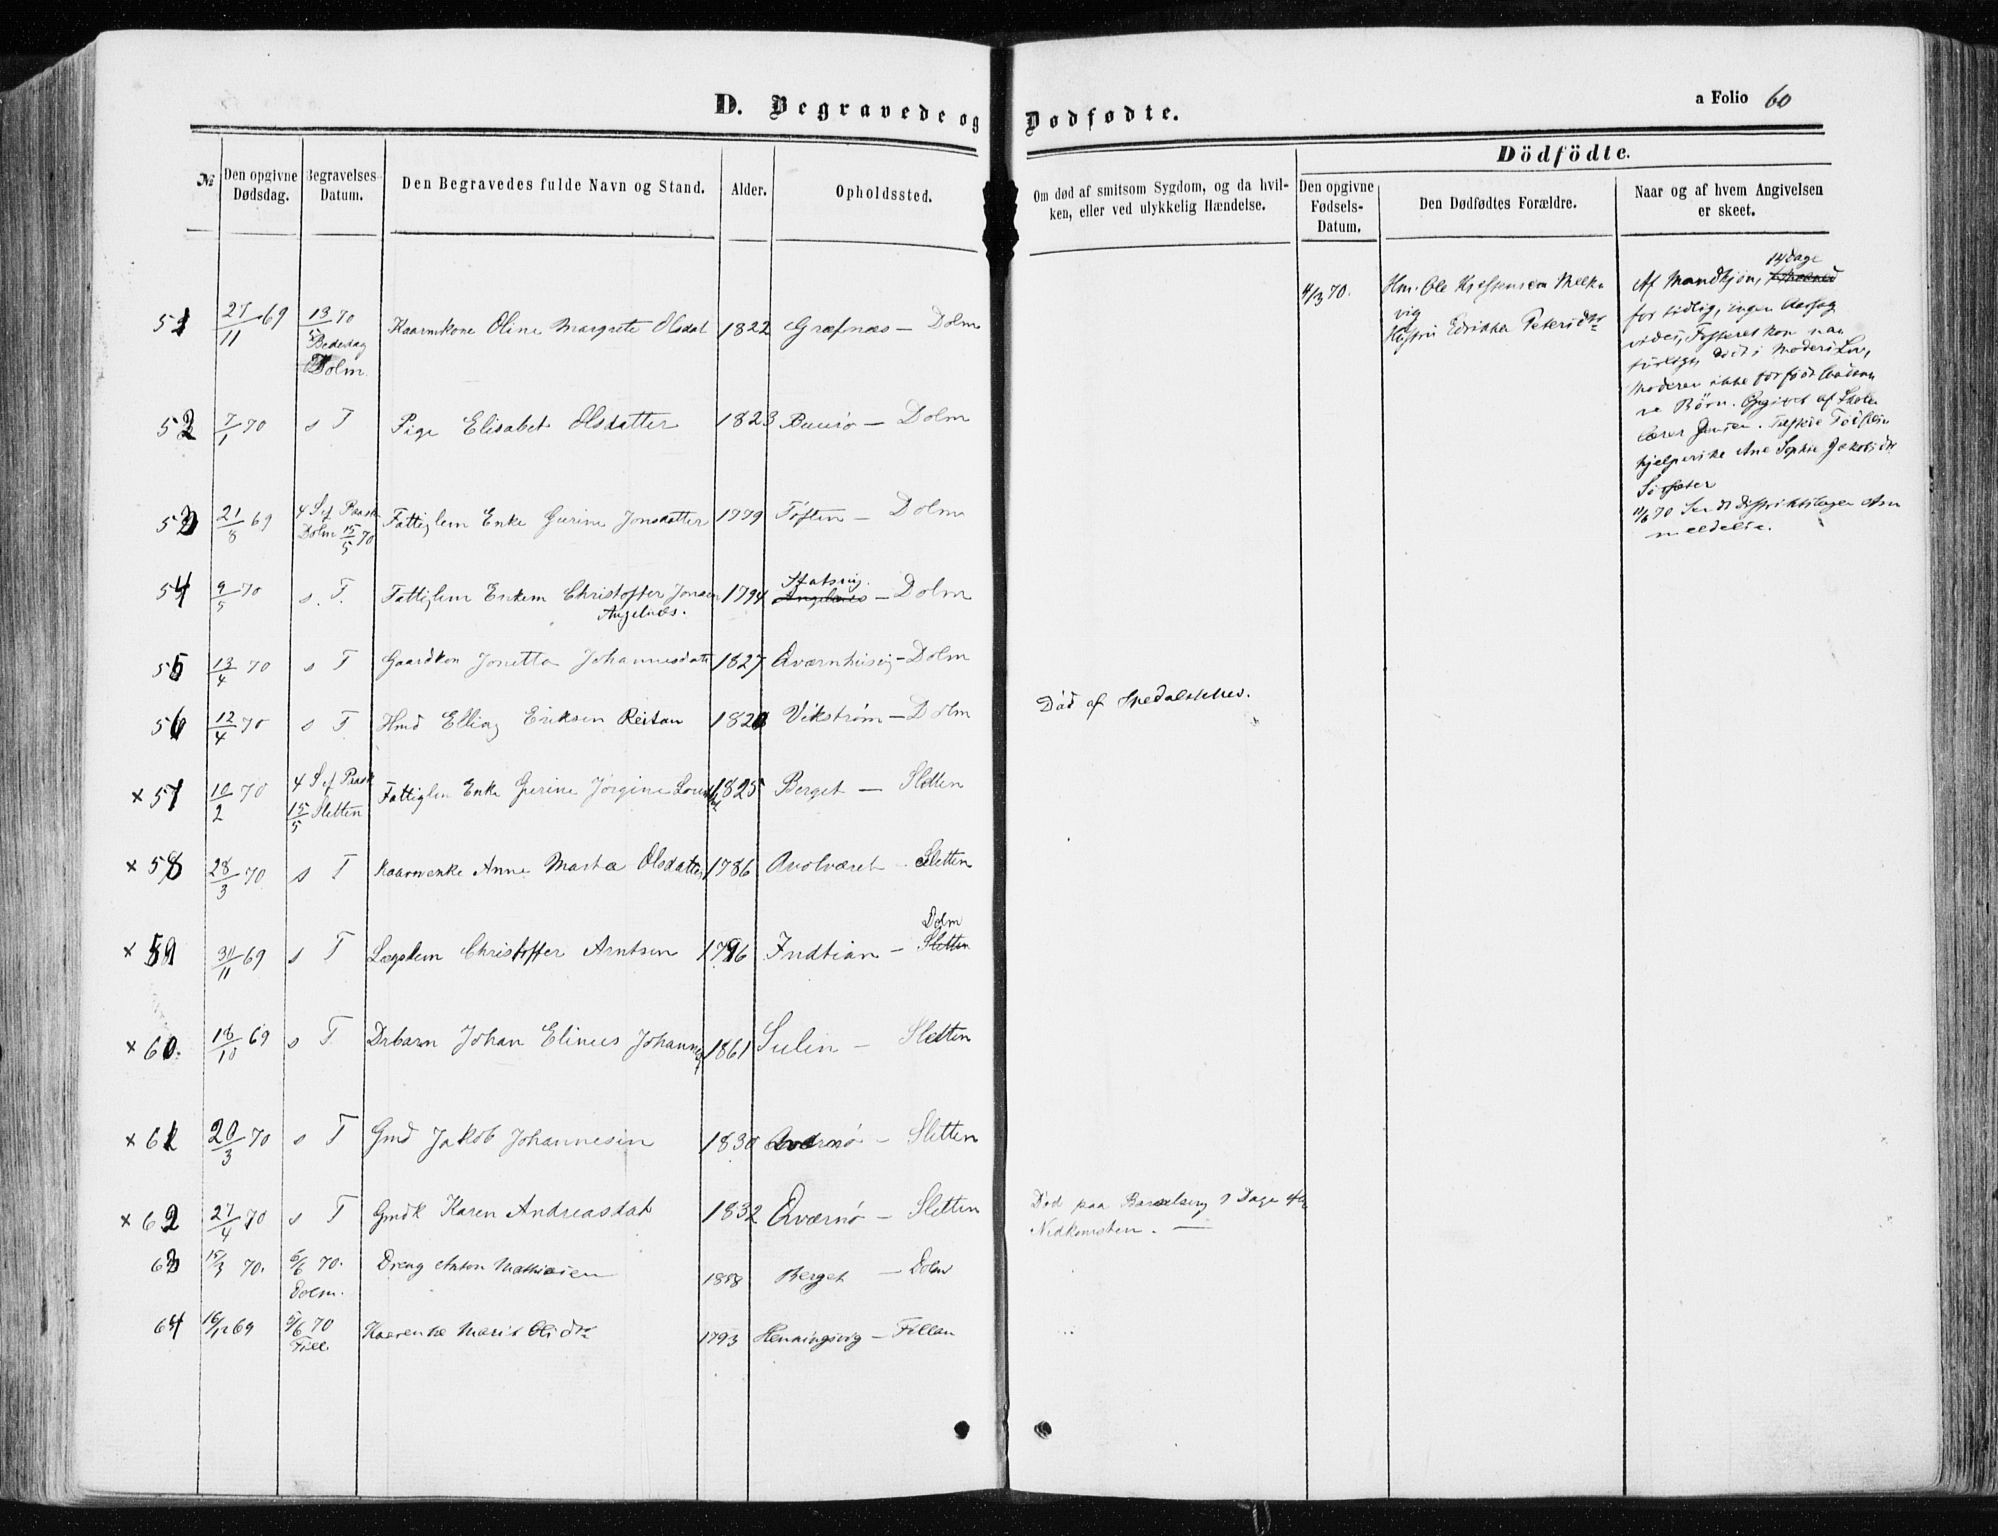 D. Begravede og Dødfødte.
a Folio 60
Dödfödte.
№ Den opgivne Dødsdag. Begravelses Datum. Den Begravedes fulde Navn og Stand. Alder. Opholdssted. Om død af smitsom Sygdom, og da hvilken, eller ved ulykkelig Hændelse. Den opgivne Fødsels-Datum. Den Dødfødtes Forældre. Naar og af hvem Angivelsen er skeet.
51 27/11 69 13/5 70 Bededag Dolm Kaarmkone Oline Margrete Olsdat 1822 Græfnæs — Dolm
52 7/1 70 s T Pige Elisabet Olsdatter 1823 Buurø — Dolm
53 21/8 69 4 S ef Paask Dolm 15/5 70 Fattiglem Enke Gurine Jonsdatter 1779 Tøften — Dolm
54 9/5 70 s. T. Fattiglem Enkem Christoffer Jonsen Angelnæs. 1794 Angelnæs — Dolm
55 13/4 70 s T Gaardkon Jonetta Johannesdatt 1827 Qværnhusvig — Dolm
56 12/4 70 s T Hmd Elling Eriksen Reitan 1820 Vikstrøm — Dolm Død af Spedalskhed.
× 57 10/2 70 4 S ef Paask 15/5 Sletten Fattiglem Enke Gurine Jørgine 1825 Berget — Sletten
× 58 28/3 70 s T Kaarmenke Anne Marta Olsdatter 1786 Qvolværet — Sletten
× 59 30/11 69 s T Lægdslem Christoffer Arntsen 1796 Indtian — Dolm Sletten
× 60. 18/10 69 s T Drbarn Johan Elinus Johannes 1861 Sulin — Sletten
× 61 20/3 70 s T Gmd Jakob Johannesen 1830 Qværnø — Sletten
× 62 27/4 70 s T Gmdk Karen Andreasdat 1832 Qværnø — Sletten Død paa Barselseng 9 Dage eft Nedkomsten. —
63 15/3 70. 5/6 70. Dolm. Dreng Anton Mathiasen 1858 Berget — Dolm
64 16/12 69 5/6 70 Fill Kaarenke Marit Olsdtr 1793 Henningsvig — Fillan
4/3 70. Hm. Ole Kristensen Melkvig
Hustru Edrikke Petersdtr
Af Mandkjøn, 14 Dage
for tidlig, ingen Aarsag
vides, Fosteret kon naa
død i Moders Liv,
Moderen ikke før født
Børn. Opgivet af Skole
lærer Jensen.
hjelperske Ane Sophie Jakobsdtr
11/6 70 Sendt Distriktslægen Anmeldelse.